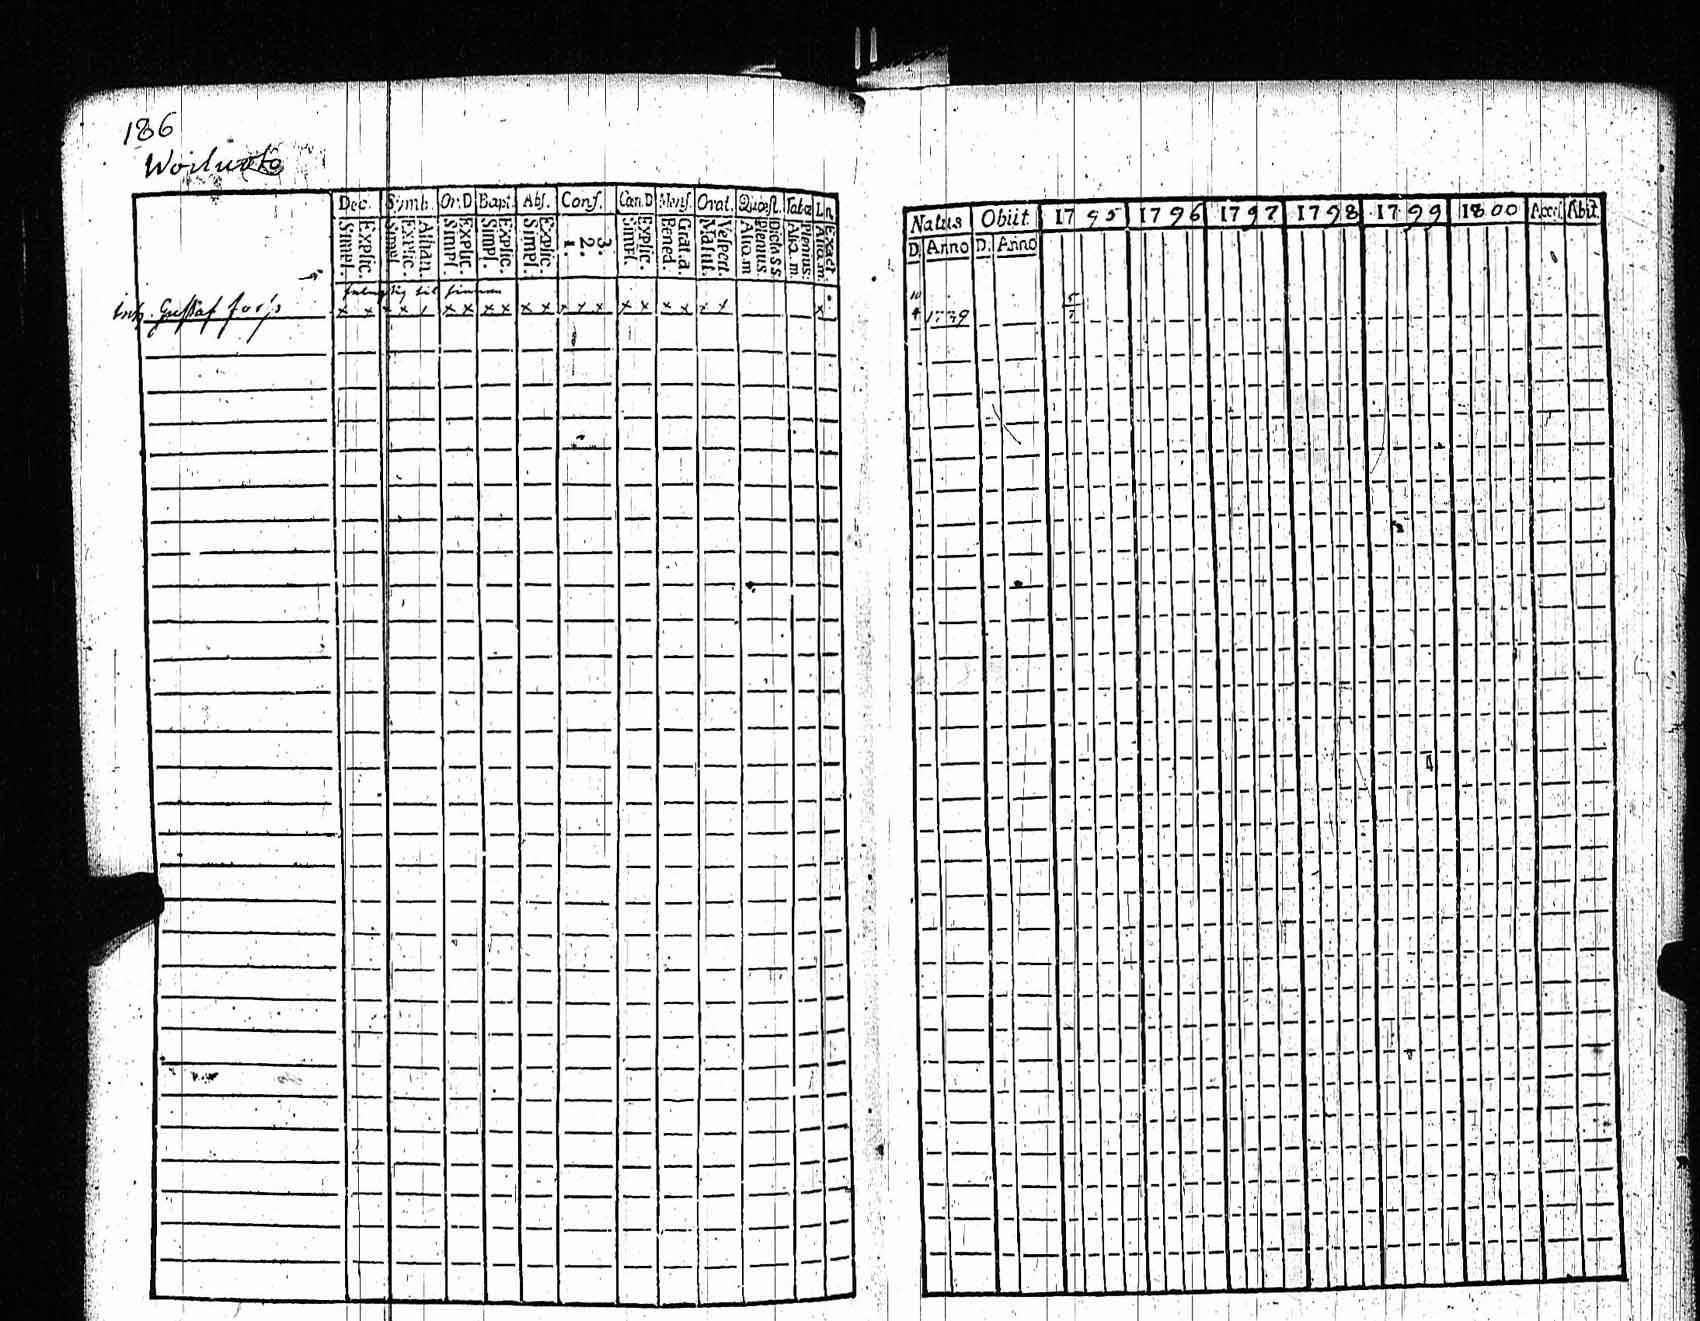 186
Dec. Symb. Or.D Bapt. Abs. Conf. Cœn.D Mens. Orat. Quæst. Tabæ
Simpl. Explic. Simpl. Explic. Athan. Simpl. Explic. Simpl. Explic. Simpl. Explic. 1. 2. 3. Simpl. Explic. Bened. Grat.a Matut. Vesper. Aliq.m Plenius. Dicta S.S. Aliq.m. Plenius: Aliq.m. Exact
til
Gustaf
x x x x x x x x x x x x x x x x x x x x x
Natus Obiit 1795 1796 1797 1798 1799 1800 Acces. Abiit.
D. Anno D. Anno
10
4 1739
5
7